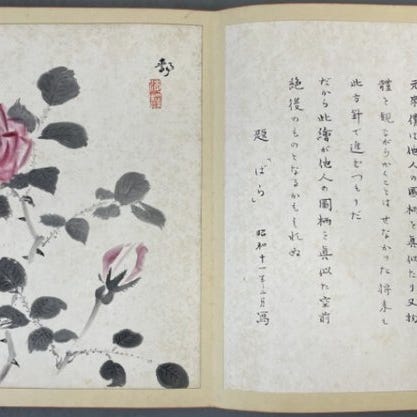 元来僕は他人の圖柄を真似たり又物
體を観ながらかくことはせなかった 将来も
此方針で進むつもりだ
だから此繪が他人の圖柄を真似た空前
絶後のものとなるかもしれぬ
題「ばら」 昭和十一年二月寫